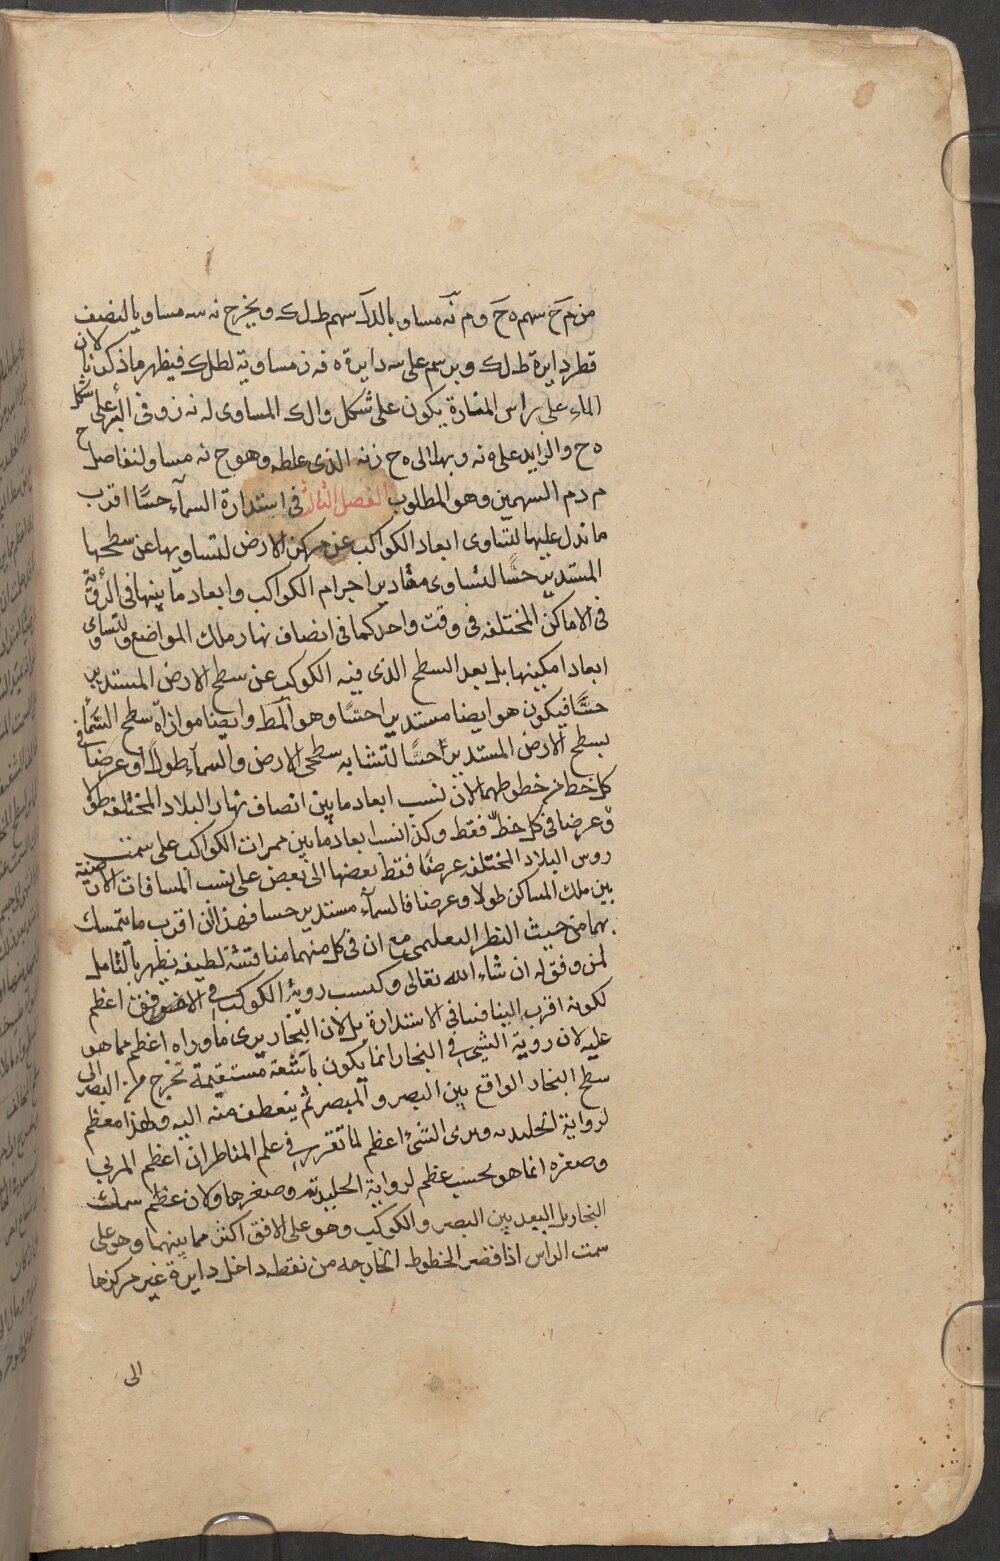 من م ح سهم ه ح و م نه مساويا لدك سهم ط ل ك ويخرج نه سه مساويا لنصف
قطر دايرة ط ل ك ويرسم على سه دايرة ه فه ز مساوية لطلك فيظهر ما ذكرنا لان
الماء على راس المنارة يكون على شكل والك المساوى له نه ز وفى البئر على شكل
ه ح والزايد على ه نه وبها الى ه ح ز نه الذى غلظه وهو ح نه مساو لتفاضل
م د م السهمين وهو المطلوب الفصل الثالث فى استدارة السمآء حسًّا اقرب
ما تدل عليها لتساوى ابعاد الكواكب عن مركز الارض لتساويها عن سطحها
المستدير حسًّا لتساوى مقادير اجرام الكواكب وابعاد ما بينها فى الرؤية
فى الاماكن المختلفه فى وقت واحد كما فى انصاف نهار ملك المواضع ولتساوى
ابعاد امكنتها بل بعد السطح الذى فيه الكوكب عن سطح الارض المستدير
حسًّا فيكون هو ايضا مستديرا حسًّا وهو المط وايضا موازاة سطح السّمآء
لسطح الارض المستدير حسًّا لتشابه سطحى الارض والسمآء طولًا وعرضا فى
كل خط من خطوطهما لان نسب ابعاد ما بين انصاف نهار البلاد المختلفه طولا
وعرضا فى كل خط فقط وكذا نسب ابعاد ما بين ممرات الكواكب على سمت
روس البلاد المختلفه عرضًا فقط بعضها الى بعض على نسب المسافات الارضية
بين ملك المساكن طولا وعرضا فالسمآء مستدير حسا فهذان اقرب ما يتمسك
بهما من حيث النظر التعليمى مع ان فى كل منهما مناقشة لطيفه يظهر بالتامل
لمن وفق له ان شاء الله تعالى وكسب روية الكوكب فى الافق اعظم
لكونه اقرب الينا فنافى الاستدارة بل لان البخار يرى ما وراه اعظم مما هو
عليه لان روية الشى فى البخار انما يكون باشعة مستقيمة تخرج من البصر الى
سطح البخار الواقع بين البصر والمبصر ثم ينعطف منه اليه ولهذا معظم
لزواية الجليديه ويرى الشئ اعظم لما تقرر فى علم المناظر ان اعظم المرئى
وصغره انما هو بحسب عظم لزواية الجليدية وصغرها ولان عظم سمك
البخار بل البعد بين البصر والكوكب وهو على الافق اكثر مما بينهما وهو على
سمت الراس اذا قصر الخطوط الخارجه من نقطه داخل دايرة غير مركزها
الى